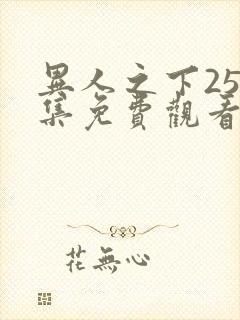 異人之下25
集免費觀看
花無心